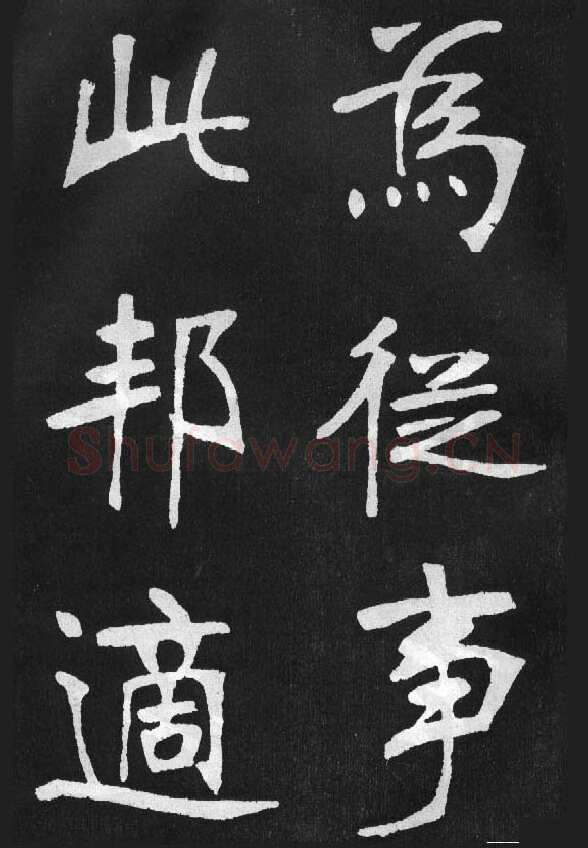 為從事
此邦適
Shufawang.CN